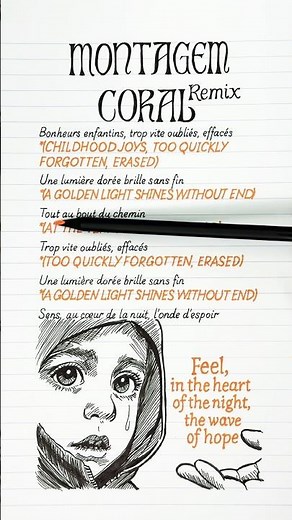 MONTAGEM
CORAL Remix
Bonheurs enfantins, trop vite oubliés, effacés
*(CHILDHOOD JOYS, TOO QUICKLY
FORGOTTEN, ERASED)
Une lumière dorée brille sans fin
*(A GOLDEN LIGHT SHINES WITHOUT END)
Tout au bout du chemin
*(AT THE
Trop vite oubliés, effacés
*(TOO QUICKLY FORGOTTEN, ERASED)
Une lumière dorée brille sans fin
*(A GOLDEN LIGHT SHINES WITHOUT END)
Sens, au cœur de la nuit, l'onde d'espoir
Feel,
in the heart
of the night,
the wave
of hope